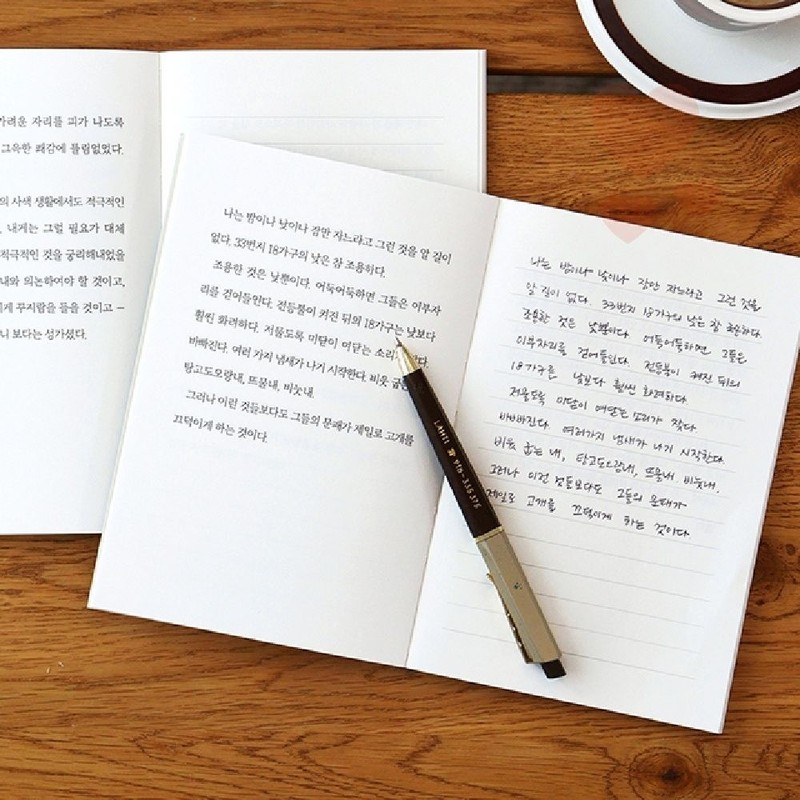 가려운 자리를 피가 나도록
그윽한 쾌감에 틀림없었다.
의 사색 생활에서도 적극적인
내게는 그럴 필요가 대체
적극적인 것을 궁리해내었을
내와 의논하여야 할 것이고,
게 꾸지람을 들을 것이고 –
니 보다는 성가셨다.
나는 밤이나 낮이나 잠만 자느라고 그런 것을 알 길이
없다. 33번지 18가구의 낮은 참 조용하다.
조용한 것은 낮뿐이다. 어둑어둑하면 그들은 이부자
리를 걷어들인다. 전등불이 켜진 뒤의 18가구는 낮보다
훨씬 화려하다. 저물도록 미닫이 여닫는 소리
바빠진다. 여러 가지 냄새가 나기 시작한다. 비웃 굽는
탕고도오랑내, 뜨물내, 비눗내.
그러나 이런 것들보다도 그들의 문패가 제일로 고개를
끄덕이게 하는 것이다.
나는 밤이나 낮이나 잠만 자느라고 그런 것을
알 길이 없다. 33번지 18가구의 낮은 참 조용하다.
조용한 것은 낮뿐이다. 어둑어둑하면 그들은
이부자리를 걷어들인다. 전등불이 켜진 뒤의
18가구는 낮보다 훨씬 화려하다.
저물도록 미닫이 여닫는 소리가 잦다.
바빠진다. 여러가지 냄새가 나기 시작한다.
비웃 굽는 내, 탕고도오랑내, 뜨물내, 비눗내.
그러나 이런 것들보다도 그들의 문패가
제일로 고개를 끄덕이게 하는 것이다.
LAMII 916-335 376